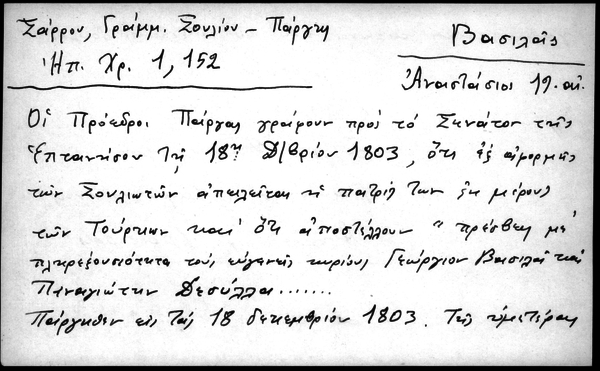 Σάρρου, Γράμμ. Σουλίου - Πάργης
Ἠπ. Χρ. 1, 152
Βασιλᾶς
Ἀναστάσιος 19. αἰ.
Οἱ Πρόεδροι Πάργας γράφουν πρὸς τὸ Σενάτον τῆς
Ἑπτανήσου τῇ 18ῃ Δ/βρίου 1803, ὅτι ἐξ ἀφορμῆς
τῶν Σουλιωτῶν ἀπειλεῖται ἡ πατρίς των ἐκ μέρους
τῶν Τούρκων καὶ ὅτι ἀποστέλλουν " πρέσβεις μὲ
πληρεξουσιότητα τοὺς εὐγενεῖς κυρίους Γεώργιον Βασιλᾶ καὶ
Παναγιώτην Δεσύλλα.......
Πάργηθεν εἰς τὰς 18 δεκεμβρίου 1803. Τῆς ὑμετέρας